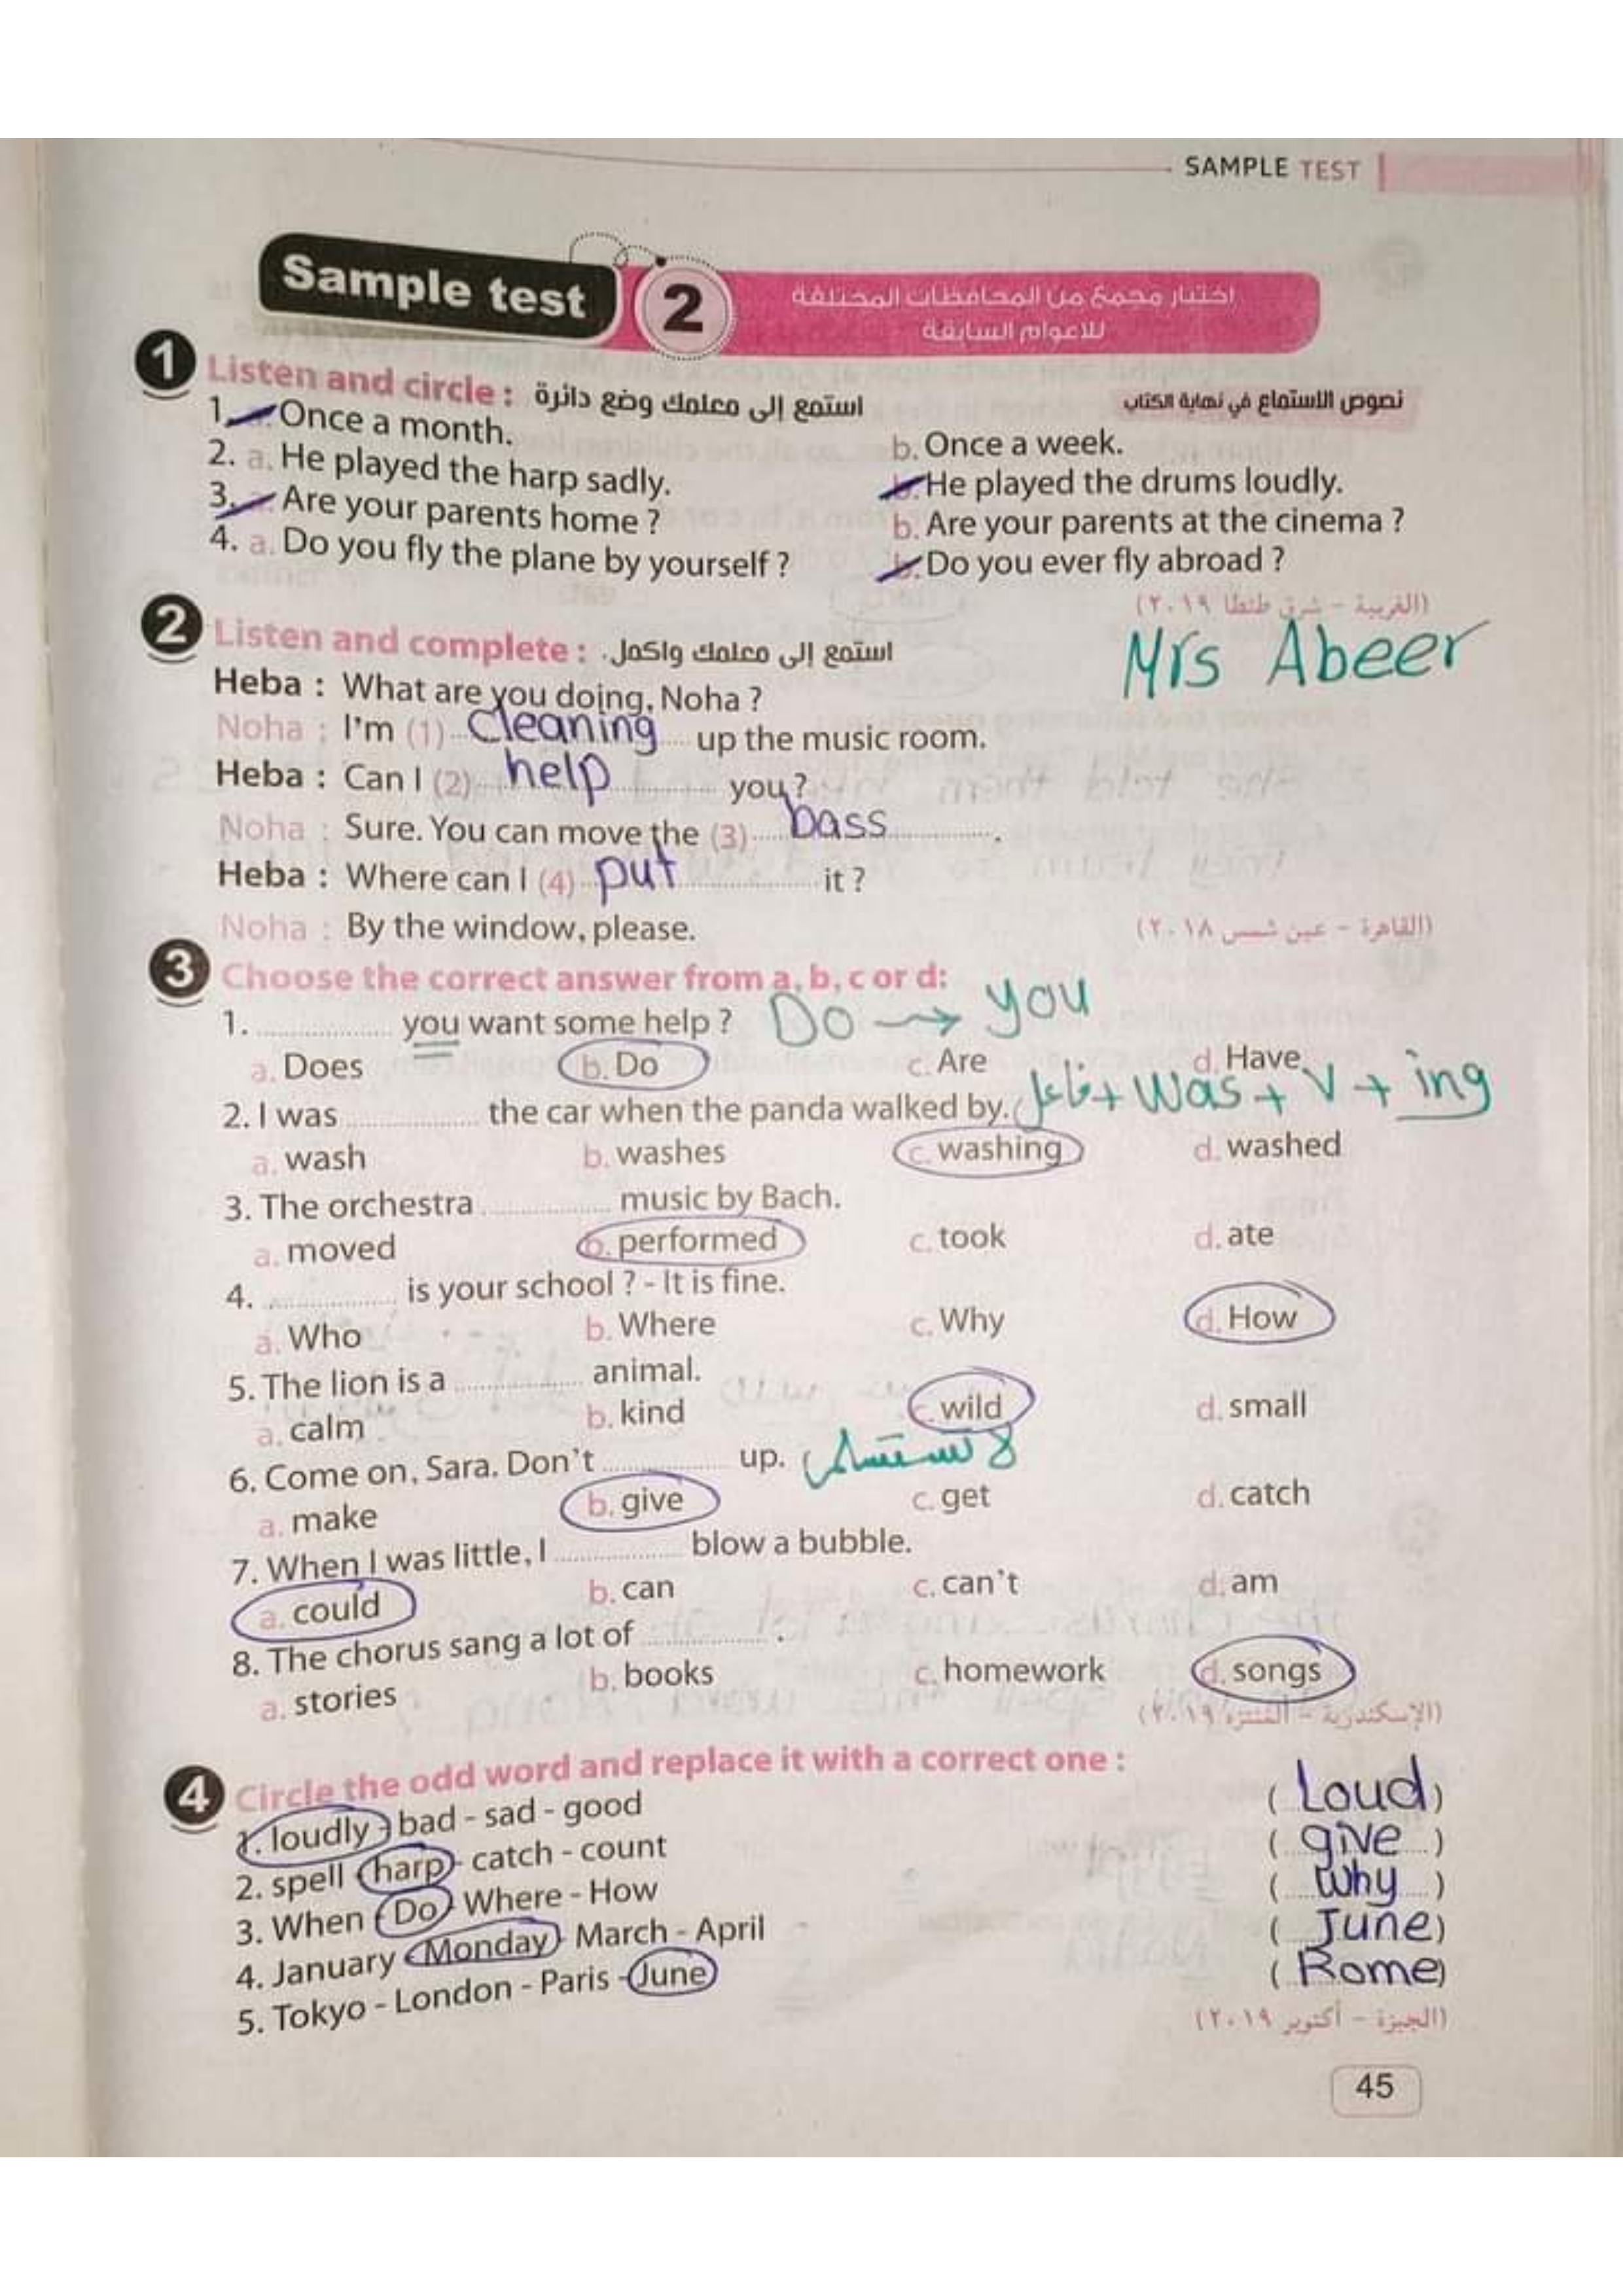 SAMPLE TEST
Sample test 2
اختبار مجمع من المحافظات المختلفة
للاعوام السابقة
1 Listen and circle : استمع إلى معلمك وضع دائرة
نصوص الاستماع في نهاية الكتاب
1. Once a month. b. Once a week.
2. a. He played the harp sadly. b. He played the drums loudly.
3. Are your parents home ? b. Are your parents at the cinema ?
4. a. Do you fly the plane by yourself ? b. Do you ever fly abroad ?
(الغربية - شرق طنطا ٢٠١٩)
2 Listen and complete : استمع إلى معلمك واكمل.
Mrs Abeer
Heba : What are you doing, Noha ?
Noha : I'm (1) Cleaning up the music room.
Heba : Can I (2) help you ?
Noha : Sure. You can move the (3) bass .
Heba : Where can I (4) put it ?
Noha : By the window, please.
(القاهرة - عين شمس ٢٠١٨)
3 Choose the correct answer from a, b, c or d:
1. ............ you want some help ? Do → you
a. Does b. Do c. Are d. Have
2. I was ............ the car when the panda walked by. فاعل + was + V + ing
a. wash b. washes c. washing d. washed
3. The orchestra ............ music by Bach.
a. moved b. performed c. took d. ate
4. ............ is your school ? - It is fine.
a. Who b. Where c. Why d. How
5. The lion is a ............ animal.
a. calm b. kind c. wild d. small
6. Come on, Sara. Don't ............ up. لا تستسلمى
a. make b. give c. get d. catch
7. When I was little, I ............ blow a bubble.
a. could b. can c. can't d. am
8. The chorus sang a lot of ............ .
a. stories b. books c. homework d. songs
(الإسكندرية - المنتزه ٢٠١٩)
4 Circle the odd word and replace it with a correct one :
1. loudly - bad - sad - good ( Loud )
2. spell - harp - catch - count ( give )
3. When - Do - Where - How ( Why )
4. January - Monday - March - April ( June )
5. Tokyo - London - Paris - June ( Rome )
(الجيزة - أكتوبر ٢٠١٩)
45